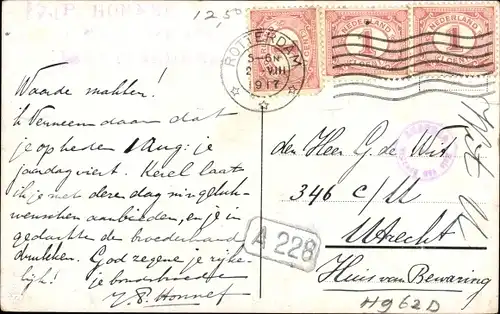 12,50
ROTTERDAM
5-6 N
2 VIII
1917
NEDERLAND
1
CENT
NEDERLAND
1
CENT
Waarde makker!
Ik Verneem daar dat
je op heden 1 Aug: je
jaardag viert. Kerel laat
ik je met deze dag mijn geluk-
wenschen aanbieden, en je in
gedachten de broederhand
drukken. God zegene je rijke-
lijk! je
J. P. Honnef
den Heer G. de Wit
346 c/U
Utrecht
Huis van Bewaring
A 228
H962D